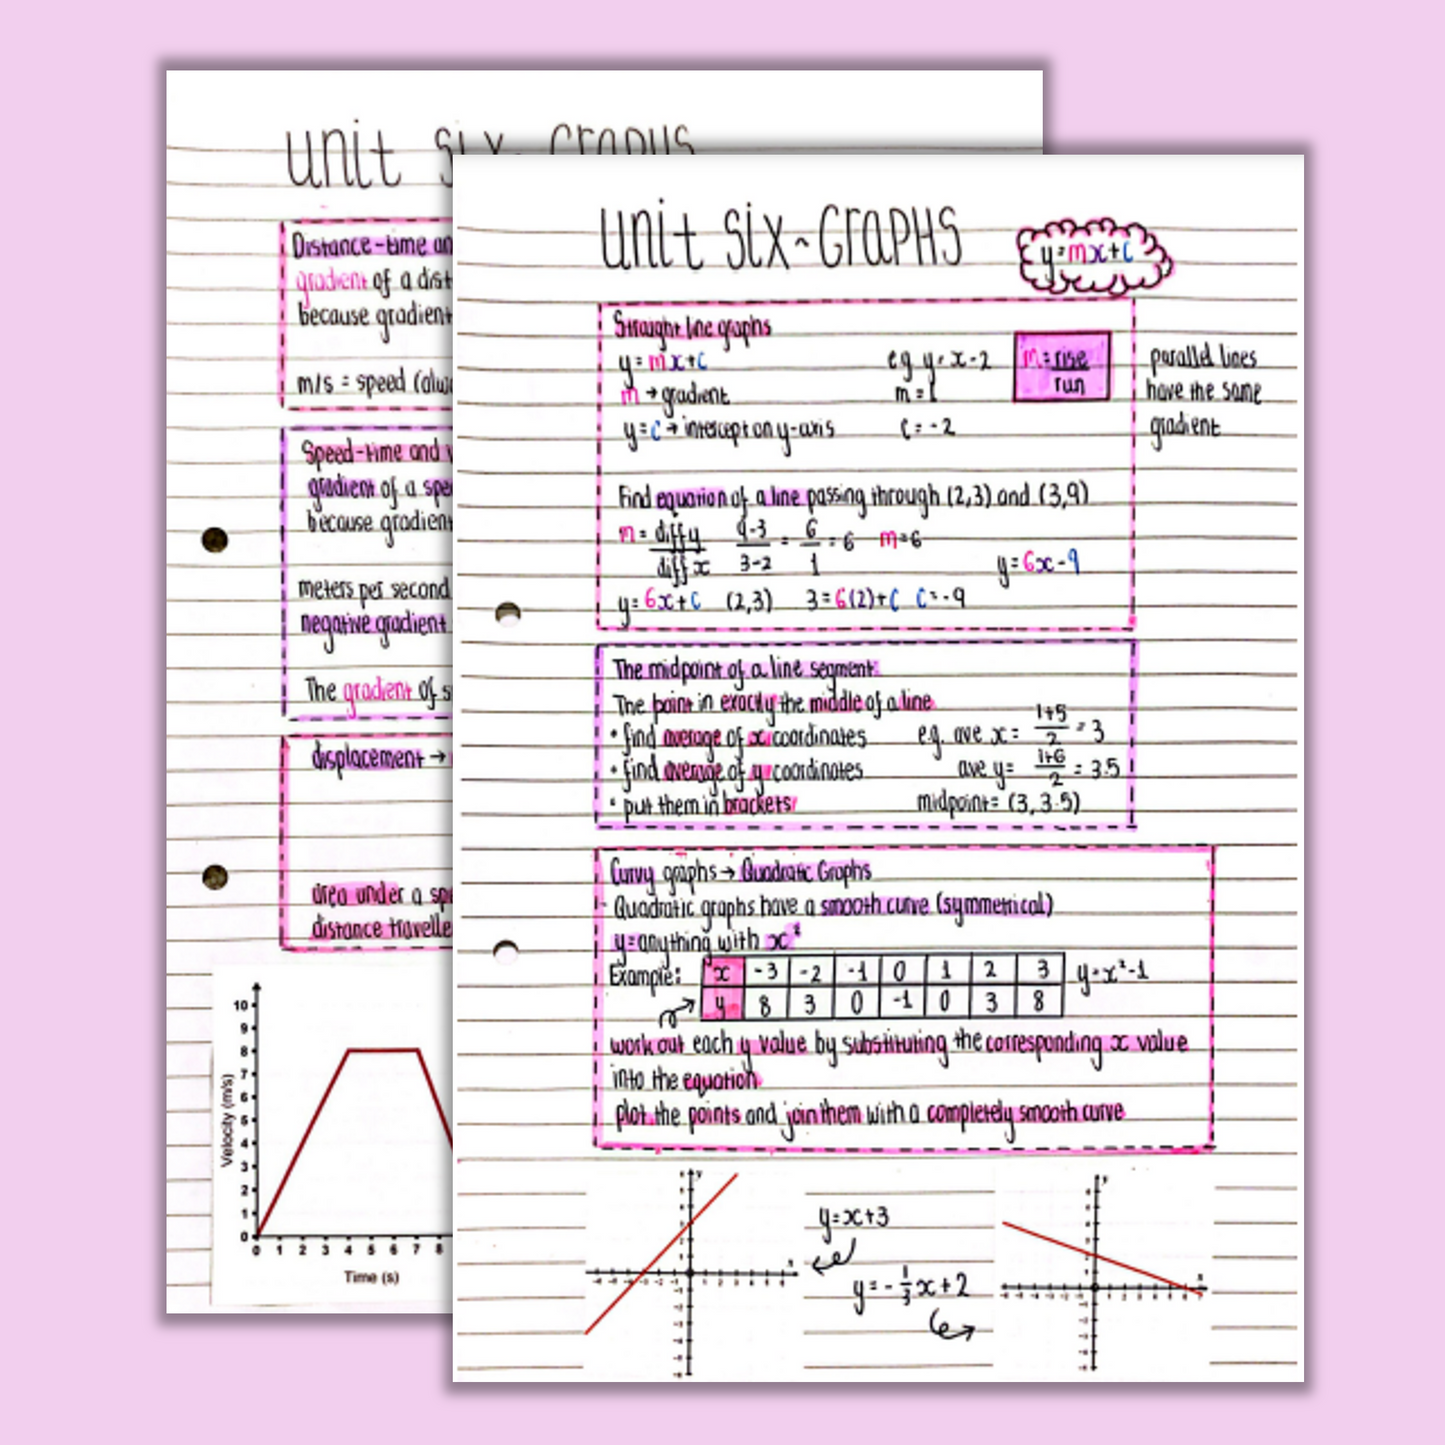 unit six~GRAPHS
Distance-time an
gradient of a dist
because gradient
m/s = speed (alwa
Speed-time and v
gradient of a spe
because gradient
meters per second
negative gradient
The gradient of s
displacement →
area under a spe
distance travelle
Velocity (m/s)
10
9
8
7
6
5
4
3
2
1
0
0 1 2 3 4 5 6 7 8
Time (s)
unit six~GRAPHS
y=mx+c
Straight line graphs
y=mx+c
m → gradient
y=c → intercept on y-axis
e.g. y=x-2
m=1
c=-2
m=rise/run
parallel lines
have the same
gradient
Find equation of a line passing through (2,3) and (3,9)
m = diff y/diff x 9-3/3-2 = 6/1 = 6 m=6
y=6x-9
y=6x+c (2,3) 3=6(2)+c c=-9
The midpoint of a line segment:
The point in exactly the middle of a line
• find average of x coordinates e.g. ave x = 1+5/2 = 3
• find average of y coordinates ave y= 1+6/2 = 3.5
• put them in brackets midpoint= (3, 3.5)
Curvy graphs → Quadratic Graphs
- Quadratic graphs have a smooth curve (symmetrical)
y=anything with x²
Example: x -3 -2 -1 0 1 2 3 y=x²-1
y 8 3 0 -1 0 3 8
work out each y value by substituting the corresponding x value
into the equation
plot the points and join them with a completely smooth curve
y=x+3
y=-1/3x+2